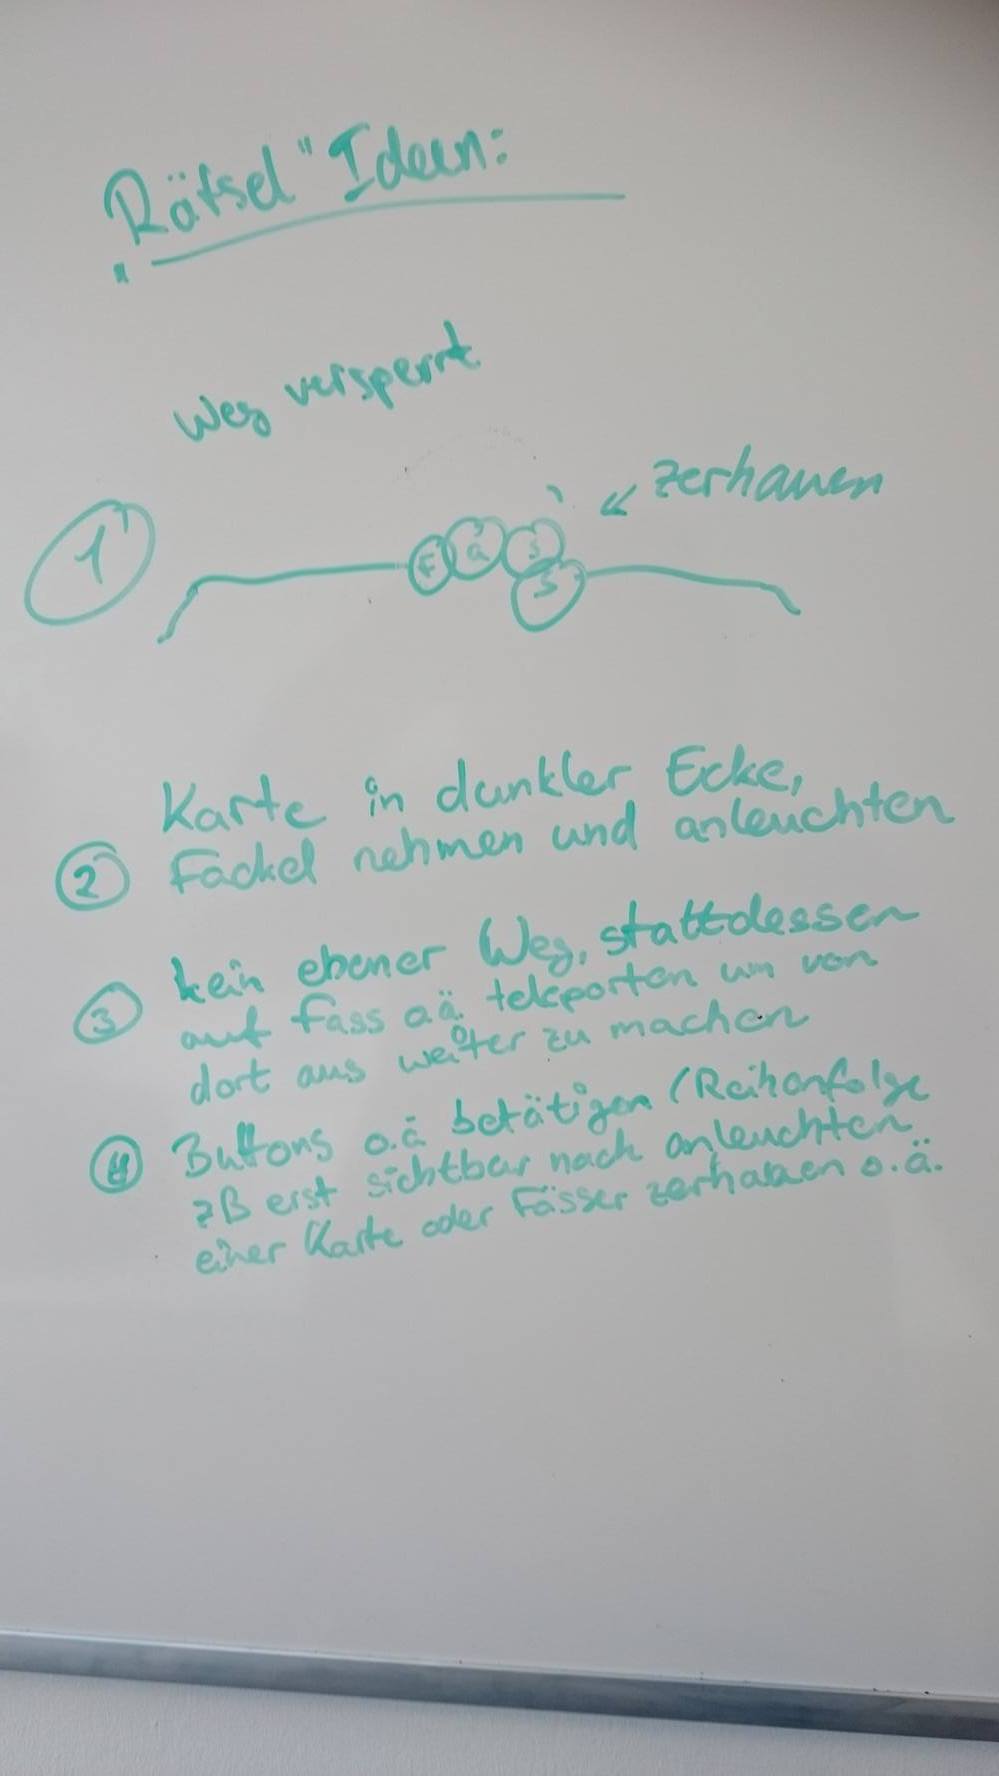 "Rätsel" Ideen:
Weg versperrt
zerhauen
1
F a s s
Karte in dunkler Ecke,
2 Fackel nehmen und anleuchten
kein ebener Weg, stattdessen
3 auf Fass o.ä. teleporten um von
dort aus weiter zu machen
4 Buttons o.ä betätigen (Reihenfolge
zB erst sichtbar nach anleuchten
einer Karte oder Fässer zerhauen o.ä.